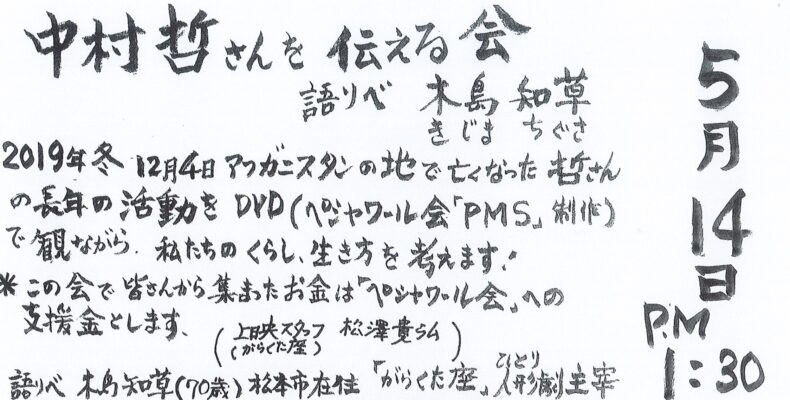 中村哲さんを伝える会
語りべ 木島 知草
きじま ちぐさ
2019年冬 12月4日 アフガニスタンの地で亡くなった 哲さん
の長年の活動を DVD(ペシャワール会「PMS」制作)
で観ながら、私たちのくらし、生き方を考えます!
*この会で皆さんから集まったお金は「ペシャワール会」への
支援金とします。
(上映スタッフ 松澤寛ラム)
(がらくた座)
語りべ 木島知草(70歳)松本市在住 「がらくた座」ひとり人形劇主宰
5月14日
P.M
1:30